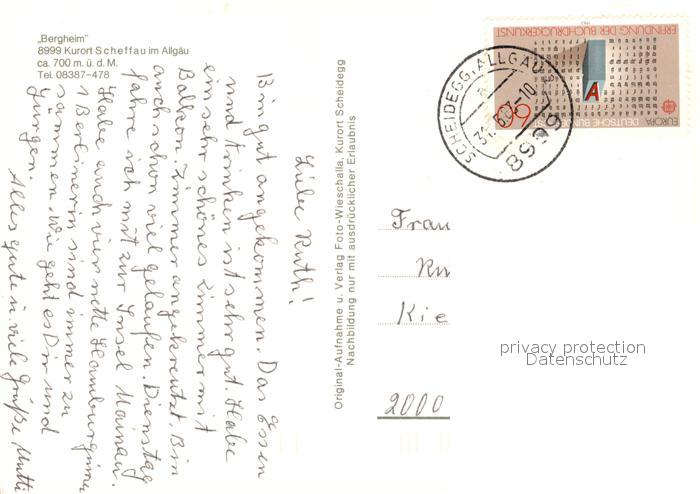 „Bergheim"
8999 Kurort Scheffau im Allgäu
ca. 700 m. ü. d. M.
Tel. 08387-478
Liebe Ruth!
Bin gut angekommen. Das Essen
und trinken ist sehr gut. Habe
ein sehr schönes Zimmer mit
Balkon. Zimmer angekreutzt. Bin
auch schon viel gelaufen. Dienstag
fahre ich mit zur Insel Mainau.
Habe auch vier nette Hamburginnen
1 Berlinerin sind immer zu
sammen. Wie geht es Dir und
Jürgen.
Alles gute u. viele Grüße Mutti
Original-Aufnahme u. Verlag Foto-Wieschalla, Kurort Scheidegg
Nachbildung nur mit ausdrücklicher Erlaubnis
EUROPA DEUTSCHE BUN
ERFINDUNG DER BUCHDRUCKERKUNST
60
A
SCHEIDEGG, ALLGÄU
-10
8999
Frau
Ru
Kie
2000
privacy protection
Datenschutz